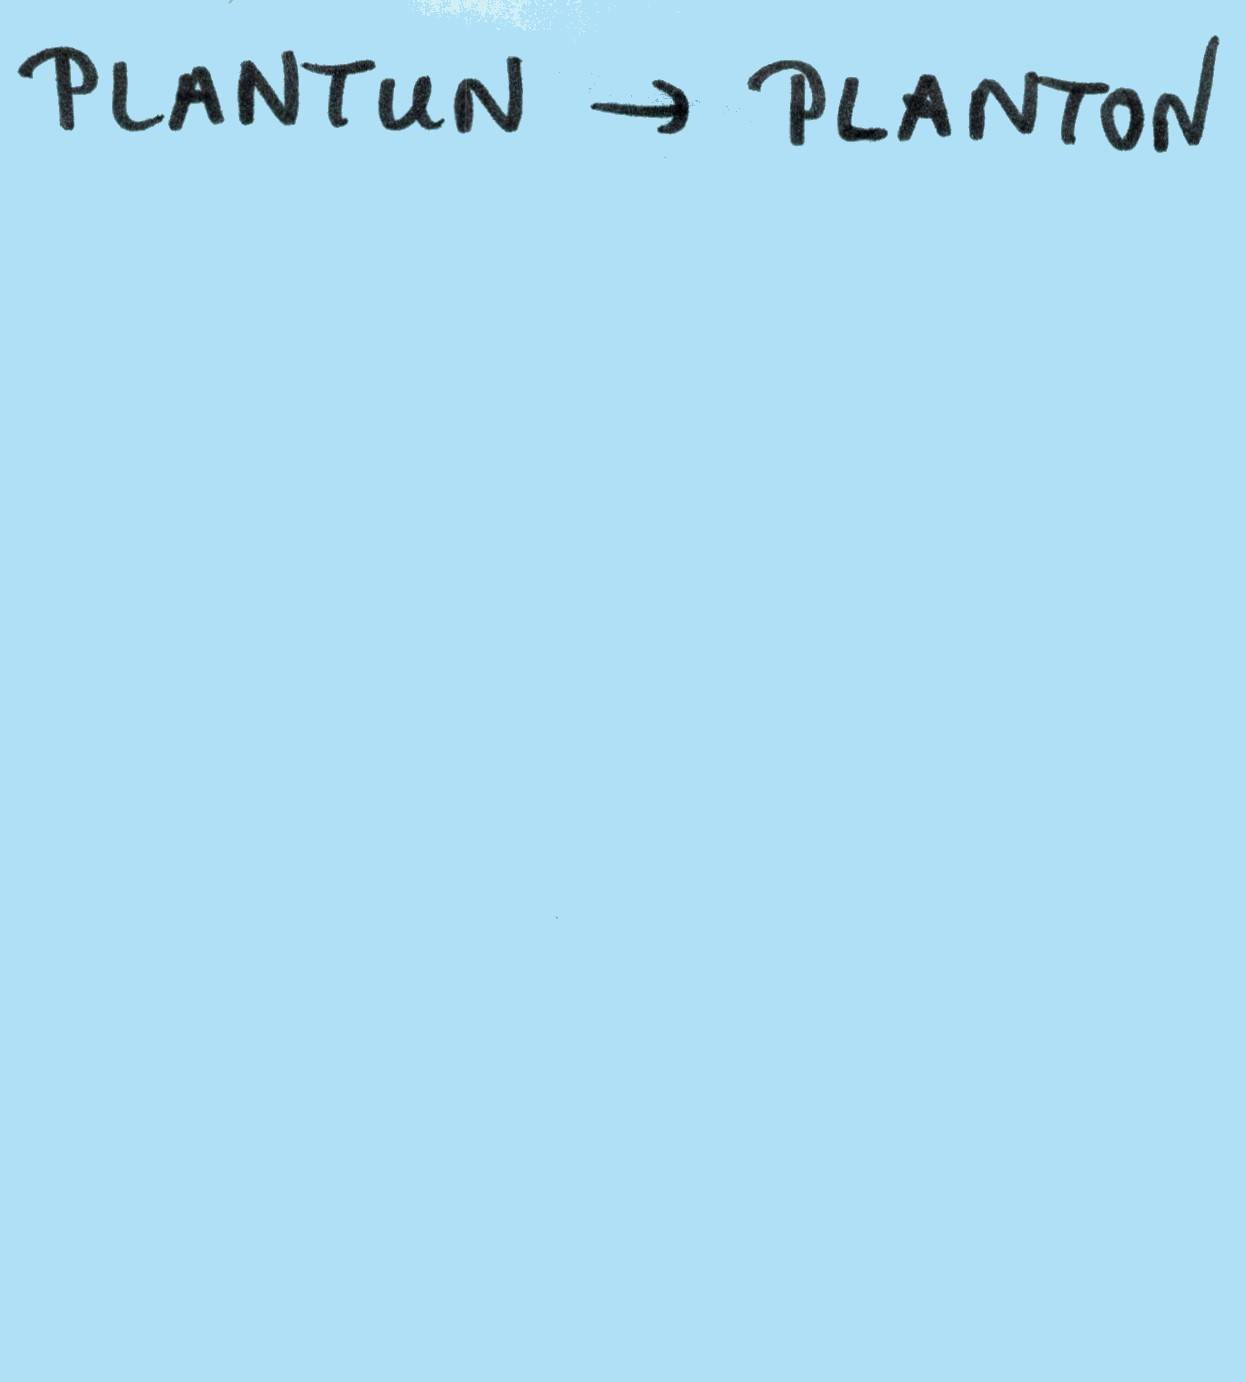 PLANTUN → PLANTON